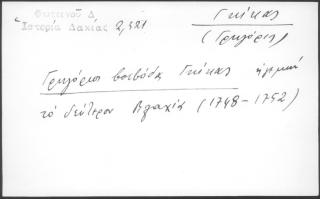 Φωτεινοῦ Δ
Ἱστορία Δακίας 2,321
Γκίκας
(Γρηγόριος)
Γρηγόριος βοεβόδα Γκίκας
τὸ δεύτερον Βλαχία (1748-1752)